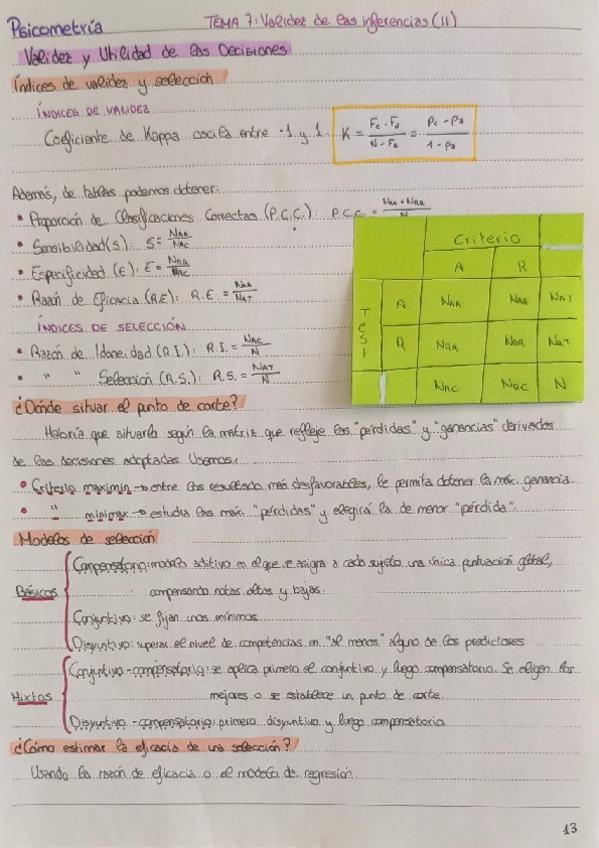 Psicometría
TEMA 7: Validez de las inferencias (II)
Validez y Utilidad de las Decisiones
Índices de validez y selección
ÍNDICES DE VALIDEZ
Coeficiente de Kappa oscila entre -1 y 1. K = (Fc - Fa)/(N - Fa) = (Pc - Pa)/(1 - Pa)
Además, de tablas podemos obtener:
• Proporción de Clasificaciones Correctas (P.C.C.): P.C.C. = /N
• Sensibilidad (S): S = NAA/NAC
• Especificidad (E): E = NRR/NRC
• Razón de Eficacia (R.E): R.E. = NAA/NAT
ÍNDICES DE SELECCIÓN
• Razón de Idoneidad (R.I.): R.I. = NAC/N
• " " Selección (R.S.): R.S. = NAT/N
Criterio
A R
Test
A NAA NAR NAT
R NRA NRR NRT
NAC NRC N
¿Dónde situar el punto de corte?
Habría que situarlo según la matriz que refleje las "pérdidas" y "ganancias" derivadas
de las decisiones adoptadas. Usamos:
• Criterio maximin → entre los resultados más desfavorables, le permita obtener la máx. ganancia.
• " minimax → estudia las máx. "pérdidas" y elegirá la de menor "pérdida".
Modelos de selección
Básicos
Compensatorio: modelo aditivo en el que se asigna a cada sujeto una única puntuación global,
compensando notas altas y bajas.
Conjuntivo: se fijan unos mínimos
Disyuntivo: superar el nivel de competencias en "al menos" alguno de los predictores
Mixtos
Conjuntivo-compensatorio: se aplica primero el conjuntivo y luego compensatorio. Se eligen los
mejores o se establece un punto de corte.
Disyuntivo-compensatorio: primero disyuntivo y luego compensatorio
¿Cómo estimar la eficacia de una selección?
Usando la razón de eficacia o el modelo de regresión.
13